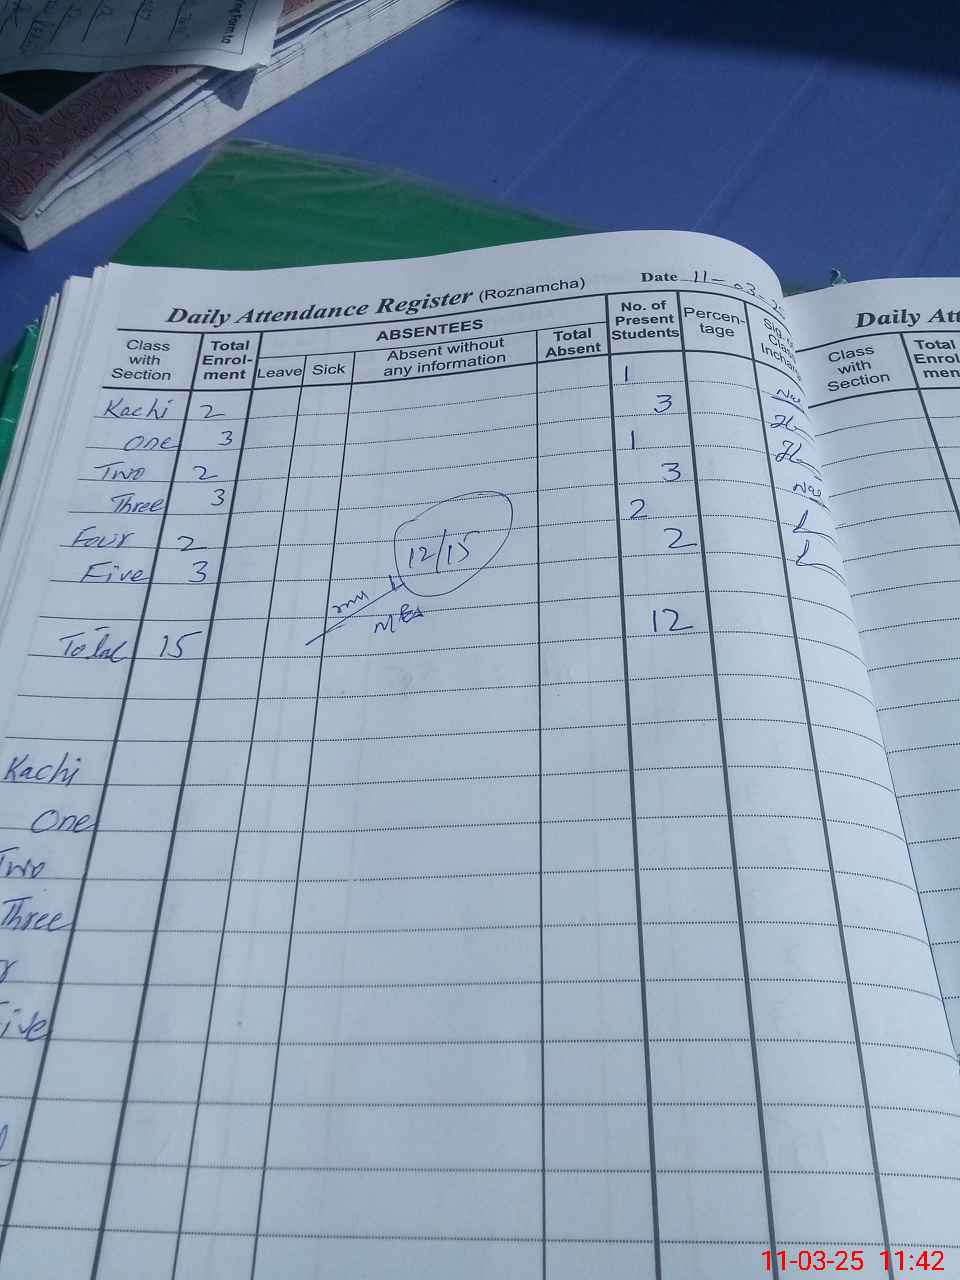 Daily Attendance Register (Roznamcha) Date 11-03-25
Class with Section Total Enrol-ment ABSENTEES Leave Sick Absent without any information Total Absent No. of Present Students Percen-tage Sig. of Class Incharge
Kachi 2 1
One 3 3
Two 2 1
Three 3 3
Four 2 2
Five 3 2
12/15
Total 15 12
Kachi
One
Two
Three
r
Five
l
Daily Att
Class with Section Total Enrol-men
11-03-25 11:42